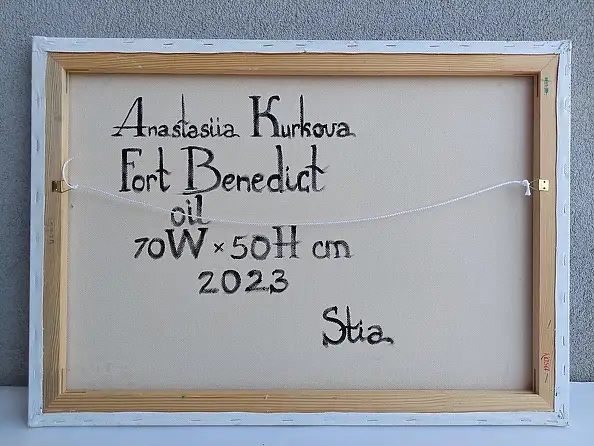 Anastasiia Kurkova
Fort Benedict
oil
70W × 50H cm
2023
Stia